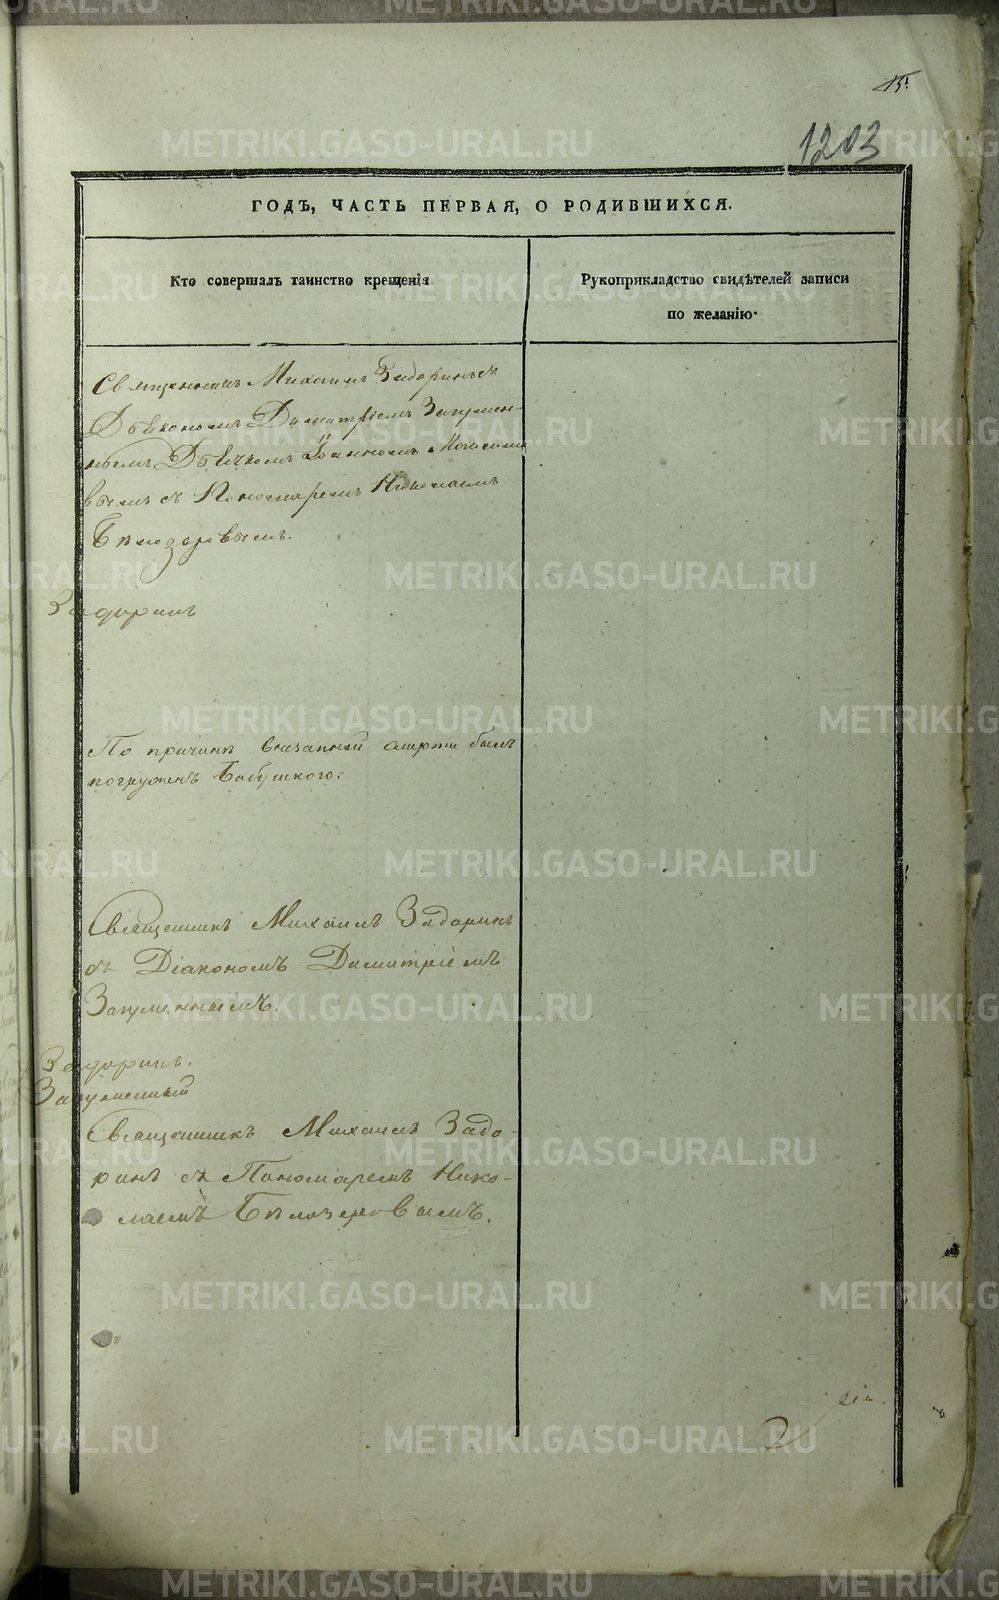 15
1203
ГОДЪ, ЧАСТЬ ПЕРВАЯ, О РОДИВШИХСЯ.
Кто совершалъ таинство крещенія
Рукоприкладство свидѣтелей записи
по желанію.
Священникъ Михаилъ Задоринъ съ
Діакономъ Димитріемъ Загумен-
нымъ Дьячкомъ Іоанномъ
вымъ съ Пономаремъ Николаемъ
Бѣлозеровымъ.
Задоринъ
По причинѣ внезапной смерти былъ
погруженъ бабушкою.
Священникъ Михаилъ Задоринъ
съ Діакономъ Димитріемъ
Загуменнымъ.
Задоринъ.
Загуменный
Священникъ Михаилъ Задо-
ринъ съ Пономаремъ Нико-
лаемъ Бѣлозеровымъ.
METRIKI.GASO-URAL.RU